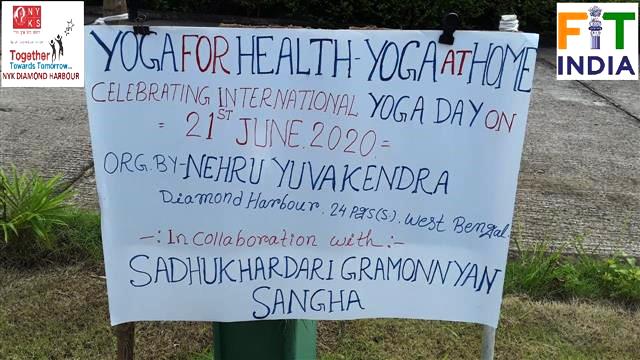 NYKS
Together
Towards Tomorrow...
NYK DIAMOND HARBOUR
FIT
INDIA
YOGA FOR HEALTH - YOGA AT HOME
CELEBRATING INTERNATIONAL YOGA DAY ON
= 21ST JUNE. 2020. =
ORG. BY - NEHRU YUVAKENDRA
Diamond Harbour. 24 Pgs(s). West Bengal
-: In Collaboration with :-
SADHUKHARDARI GRAMONNYAN
SANGHA